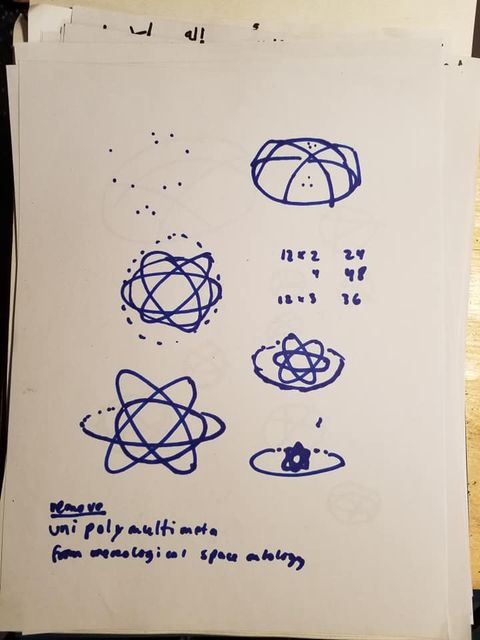 12 x 2 24
4 48
12 x 3 36
remove
uni poly multi meta
from merological space ontology